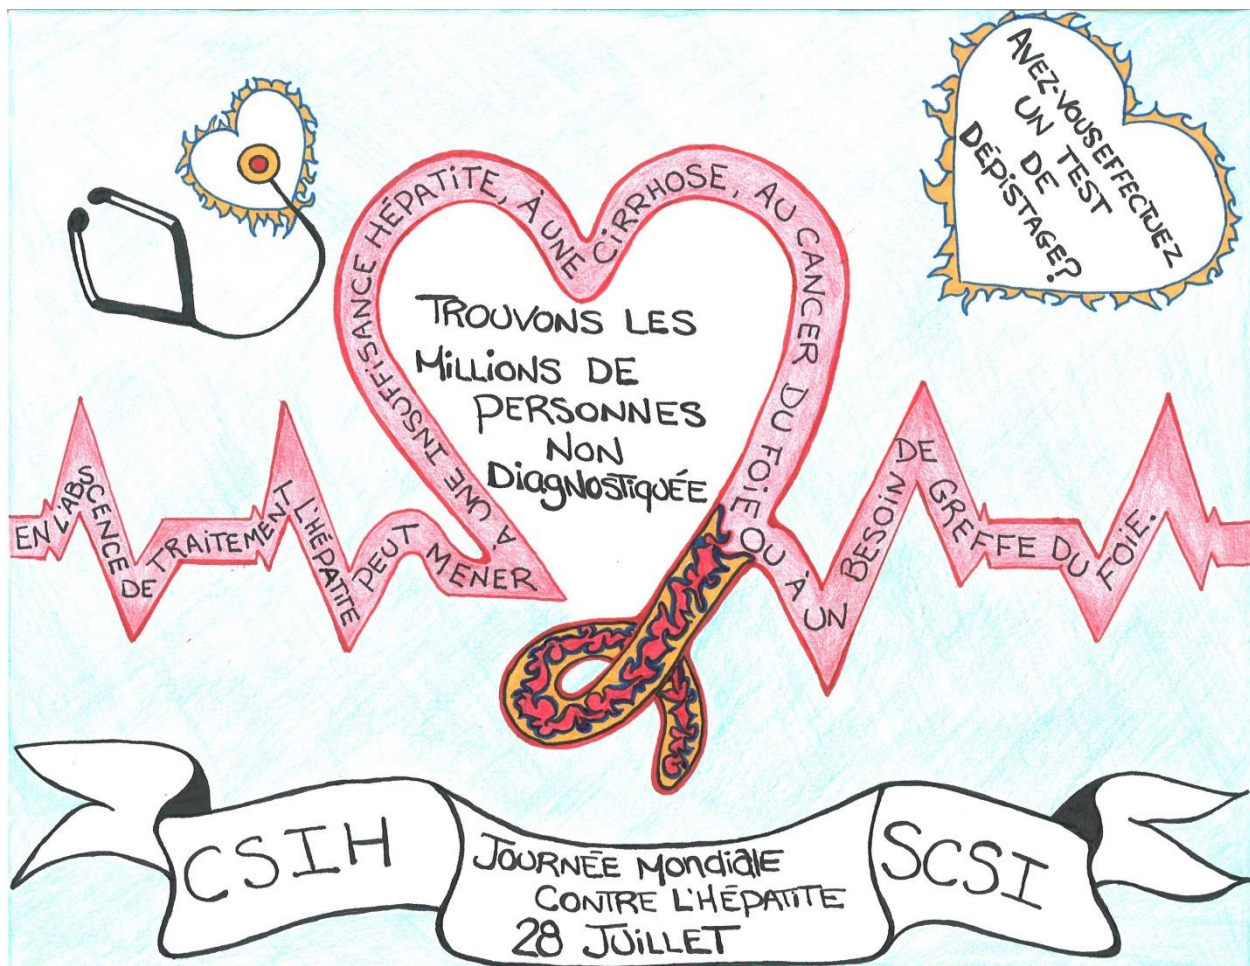 AVEZ-VOUS EFFECTUEZ
UN TEST
DE
DÉPISTAGE?
TROUVONS LES
MILLIONS DE
PERSONNES
NON
DIAGNOSTIQUÉE
EN L'ABSCENCE DE TRAITEMENT L'HÉPATITE PEUT MENER À UNE INSUFFISANCE HÉPATITE, À UNE CIRRHOSE, AU CANCER DU FOIE OU À UN BESOIN DE GREFFE DU FOIE.
CSIH
JOURNÉE MONDIALE
CONTRE L'HÉPATITE
28 JUILLET
SCSI